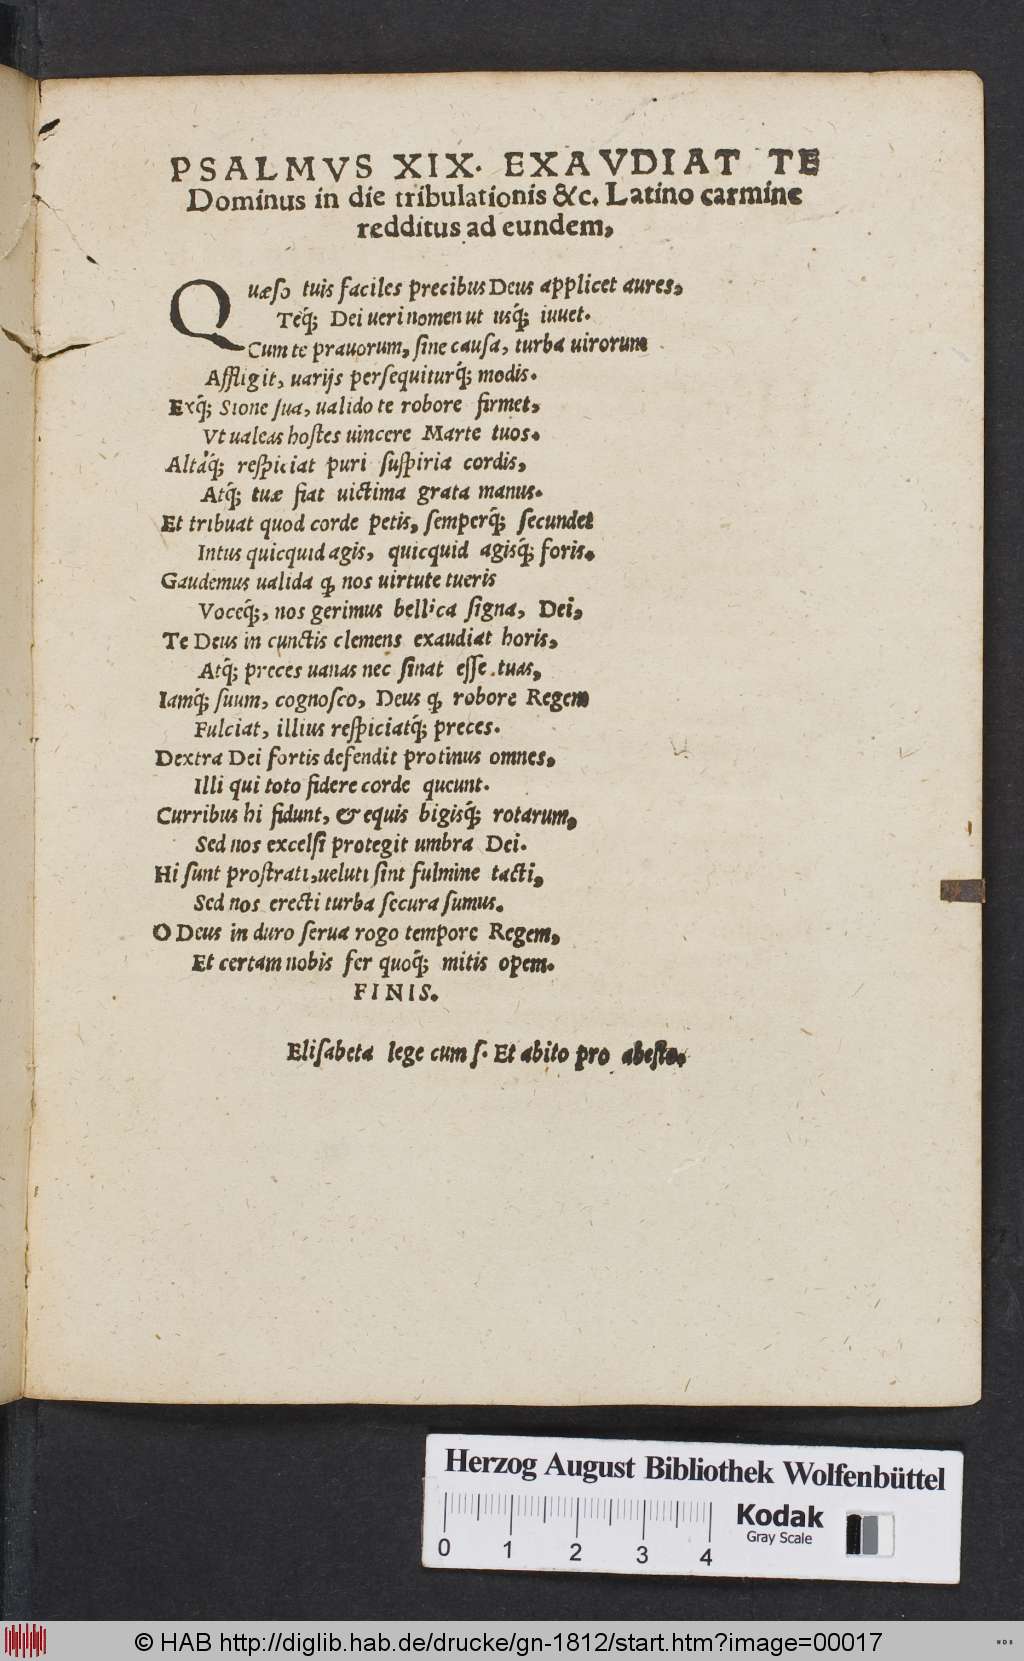 PSALMVS XIX. EXAVDIAT TE
Dominus in die tribulationis &c. Latino carmine
redditus ad eundem,
Quæso tuis faciles precibus Deus applicet aures,
Teq́; Dei ueri nomen ut usq́; iuuet.
Cum te prauorum, sine causa, turba uirorum
Affligit, uarijs persequiturq́; modis.
Exq́; Sione sua, ualido te robore firmet,
Vt ualeas hostes uincere Marte tuos.
Altáq́; respiciat puri suspiria cordis,
Atq́; tuæ fiat uictima grata manus.
Et tribuat quod corde petis, semperq́; secundet
Intus quicquid agis, quicquid agisq́; foris.
Gaudemus ualida ꝗ nos uirtute tueris
Voceq́;, nos gerimus bellica signa, Dei,
Te Deus in cunctis clemens exaudiat horis,
Atq́; preces uanas nec sinat esse tuas,
Iamq́; suum, cognosco, Deus ꝗ robore Regem
Fulciat, illius respiciatq́; preces.
Dextra Dei fortis defendit protinus omnes,
Illi qui toto fidere corde queunt.
Curribus hi fidunt, & equis bigisq́; rotarum,
Sed nos excelsi protegit umbra Dei.
Hi sunt prostrati, ueluti sint fulmine tacti,
Sed nos erecti turba secura sumus.
O Deus in duro serua rogo tempore Regem,
Et certam nobis fer quoq́; mitis opem.
FINIS.
Elisabeta lege cum s. Et abito pro abesto.
Herzog August Bibliothek Wolfenbüttel
Kodak
Gray Scale
0 1 2 3 4
© HAB http://diglib.hab.de/drucke/gn-1812/start.htm?image=00017